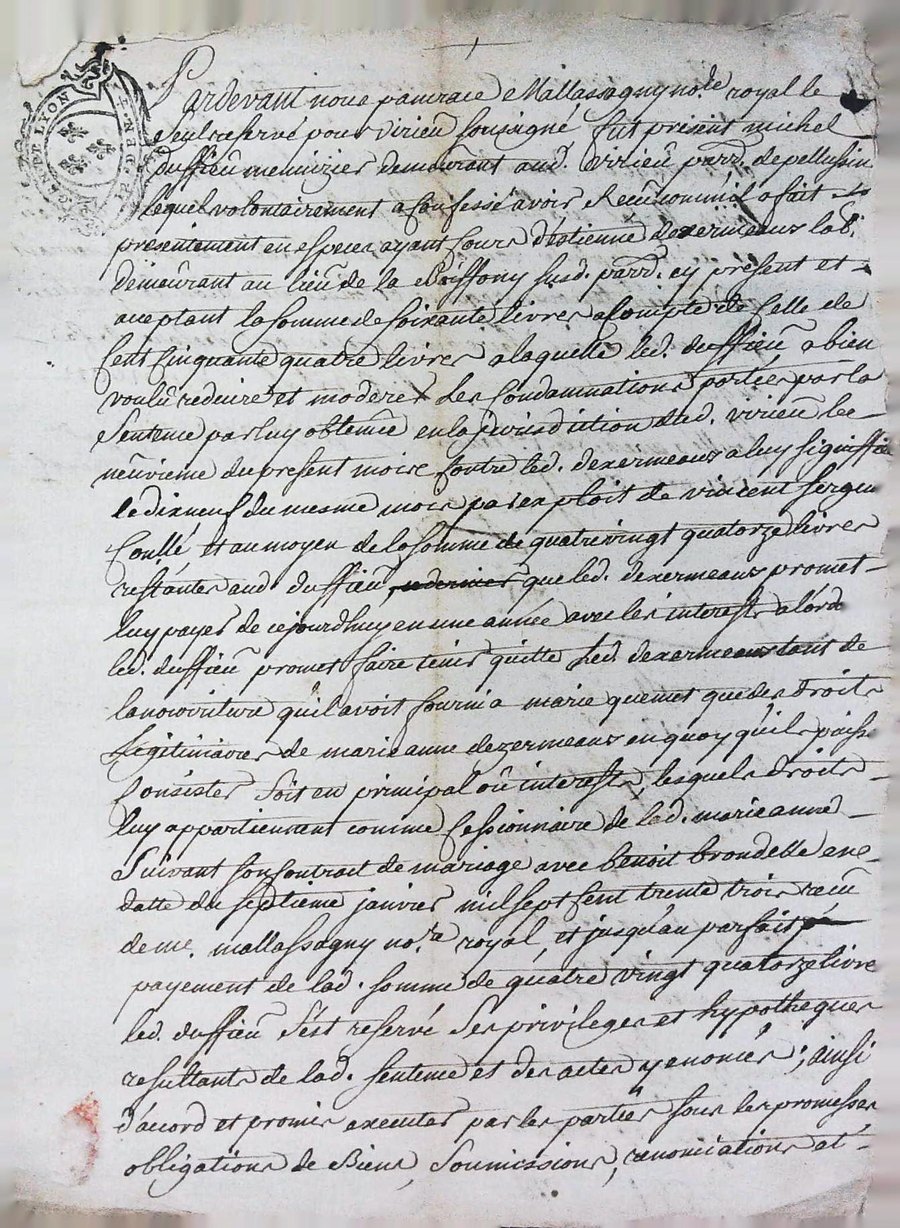 GN. DE LYON
Pardevant nous pancrace Mallassagny nore. royal le
seul reservé pour virieu soussigné fut present michel
duffieu menuizier demeurant aud. virieu parr. de pellussin
lequel volontairement a confessé avoir receu
presentement en especes ayant cours d'estienne dezermeaux lab.
demeurant au lieu de la susd. parr. cy present et
acceptant la somme de soixante livres a compte de celle de
Cent cinquante quatre livres a laquelle led. duffieu a bien
voulu reduire et moderer les condamnations portées par la
Sentence par luy obtenue en la jurisdiction dud. virieu le
neuvieme du present mois contre led. dezermeaux a luy signiffiée
le dix neuf du mesme mois par exploit de vincent sergent
Conllé et au moyen de la somme de quatre vingt quatorze livres
restantes aud. duffieu que led. dezermeaux promet
luy payer de cejourdhuy en une année avec les interests
led. duffieu promet faire tenir quitte led. dezermeaux tant de
la nourriture qu'il avoit fourni a marie quemet que des droits
Legitimaires de marie anne dezermeaux en quoy qu'ils puisse
Consister soit en principal ou interests, lesquels droits
luy appartiennent comme Cessionnaire de lad. marie anne
Suivant son contrat de mariage avec benoit brondelle en
datte du septieme janvier mil sept cent trente trois receu
de me. mallassagny nore. royal, et jusqu'au parfait
payement de lad. somme de quatre vingt quatorze livre
led. duffieu s'est reservé ses privileges et hypotheques
resultants de lad. sentence et des actes y enoncés; ainsi
d'accord et promis executer par les parties sous les promesses
obligations de Biens, Soumissions, renonciations et